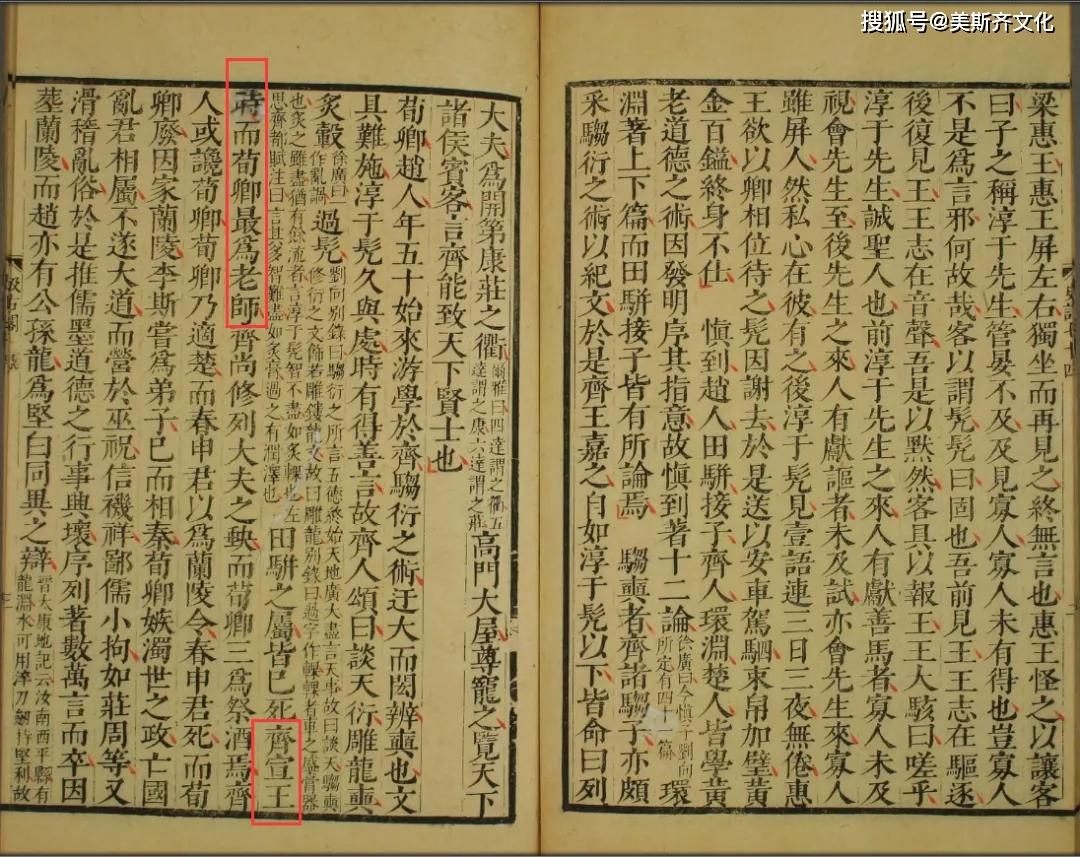 搜狐号@美斯齐文化
梁惠王惠王屏左右獨坐而再見之終無言也惠王怪之以讓客
曰子之稱淳于先生管晏不及及見寡人寡人未有得也豈寡人
不足爲言邪何故哉客以謂髠髠曰固也吾前見王王志在驅逐
後復見王王志在音聲吾是以默然客具以報王王大駭曰嗟乎
淳于先生誠聖人也前淳于先生之來人有獻善馬者寡人未及
視會先生至後先生之來人有獻謳者未及試亦會先生來寡人
雖屏人然私心在彼有之後淳于髠見壹語連三日三夜無倦惠
王欲以卿相位待之髠因謝去於是送以安車駕駟束帛加璧黃
金百鎰終身不仕 愼到趙人田駢接子齊人環淵楚人皆學黃
老道德之術因發明序其指意故愼到著十二論徐廣曰今愼子劉向所定有四十一篇環
淵著上下篇而田駢接子皆有所論焉 騶奭者齊諸騶子亦頗
采騶衍之術以紀文於是齊王嘉之自如淳于髠以下皆命曰列
大夫爲開第康莊之衢爾雅曰四達謂之衢五達謂之康六達謂之莊高門大屋尊寵之覽天下
諸侯賓客言齊能致天下賢士也
荀卿趙人年五十始來游學於齊騶衍之術迂大而閎辨奭也文
具難施淳于髠久與處時有得善言故齊人頌曰談天衍雕龍奭
炙轂徐廣曰一作亂調過髠劉向别錄曰騶衍之所言五德終始天地廣大盡言天事故曰談天騶奭修衍之文飾若雕鏤龍文故曰雕龍别錄曰過字作輠輠者車之盛膏器
也炙之雖盡猶有餘流者言淳于髠智不盡如炙輠也左思齊都賦注曰言其多智難盡如炙膏過之有潤澤也田駢之屬皆已死齊宣王
時而荀卿最爲老師齊尚修列大夫之缺而荀卿三爲祭酒焉齊
人或讒荀卿荀卿乃適楚而春申君以爲蘭陵令春申君死而荀
卿廢因家蘭陵李斯嘗爲弟子已而相秦荀卿嫉濁世之政亡國
亂君相屬不遂大道而營於巫祝信禨祥鄙儒小拘如莊周等又
滑稽亂俗於是推儒墨道德之行事興壞序列著數萬言而卒因
葬蘭陵而趙亦有公孫龍爲堅白同異之辯晉太康地記云汝南西平縣有龍淵水可用淬刀劒特堅利故